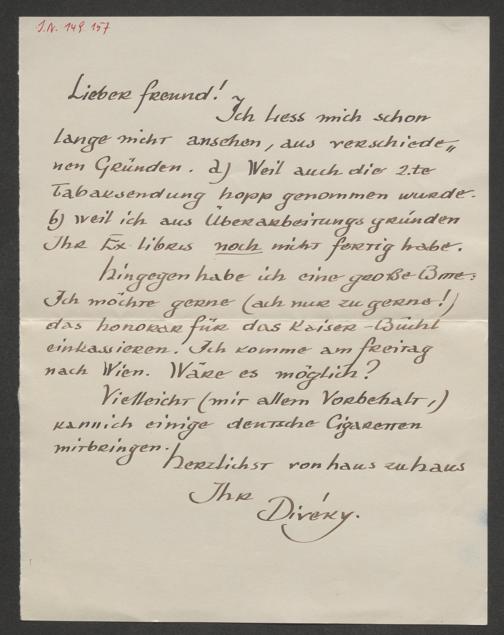 J.N. 149.157
Lieber Freund!
Ich liess mich schon
lange nicht ansehen, aus verschiede„
nen Gründen. a) Weil auch die 2.te
Tabaksendung hopp genommen wurde.
b) weil ich aus Überarbeitungsgründen
Ihr Ex libris noch nicht fertig habe.
Hingegen habe ich eine große Bitte:
Ich möchte gerne (ach nur zu gerne!)
das Honorar für das Kaiser-Büchl
einkassieren. Ich komme am Freitag
nach Wien. Wäre es möglich?
Vielleicht (mit allem Vorbehalt,)
kann ich einige deutsche Cigaretten
mitbringen.
Herzlichst von Haus zu Haus
Ihr
Divéky.